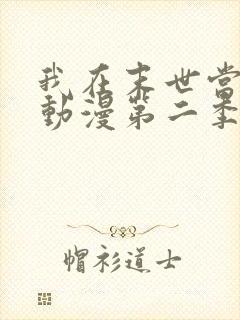 我在末世当
動漫第二季
帽衫道士